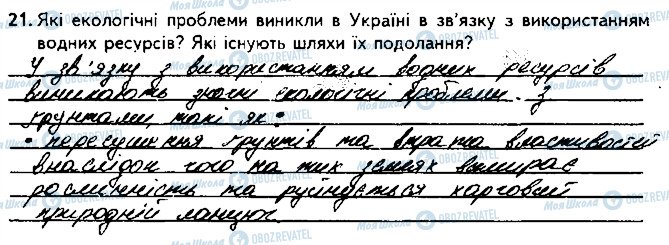 21. Які екологічні проблеми виникли в Україні в зв'язку з використанням
водних ресурсів? Які існують шляхи їх подолання?
У зв'язку з використанням водних ресурсів
виникають значні екологічні проблеми з
ґрунтами, такі як:
• пересушення ґрунтів та втрата властивостей
внаслідок чого на тих землях вимирає
рослинність та руйнується харчовий
природній ланцюг.